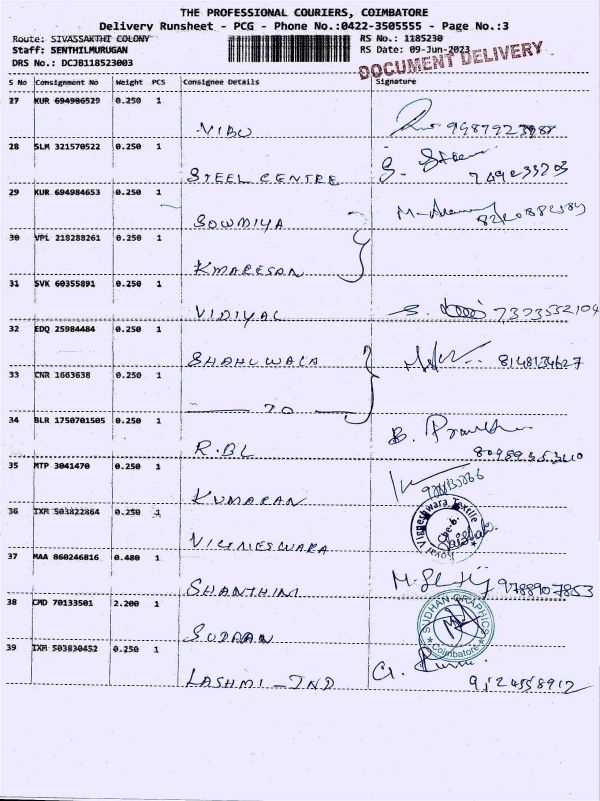 THE PROFESSIONAL COURIERS, COIMBATORE
Delivery Runsheet - PCG - Phone No.:0422-3505555 - Page No.:3
Route: SIVASSAKTHI COLONY RS No.: 1185230
Staff: SENTHILMURUGAN RS Date: 09-Jun-2023
DRS No.: DCJB118523003 DOCUMENT DELIVERY
S No Consignment No Weight PCS Consignee Details Signature
27 KUR 694986529 0.250 1
VIBU
28 SLM 321570522 0.250 1
STEEL CENTRE
29 KUR 694984653 0.250 1
SOWMIYA
30 VPL 218288261 0.250 1
KMARESAN
31 SVK 60355891 0.250 1
VIDIYAL
32 EDQ 25984484 0.250 1
SHAHUWALA 8148134627
33 CNR 1663638 0.250 1
TO
34 BLR 1750701505 0.250 1
R.BL
35 MTP 3041470 0.250 1
KUMARAN
36 IXM 503822864 0.250 1
VIGNESWARA
37 MAA 860246816 0.480 1
SHANTHINI 9788907853
38 CMD 70133501 2.200 1 SUDHAN GRAPHICS
SUDHAN Coimbatore
39 IXM 503830452 0.250 1
LASHMI-IND